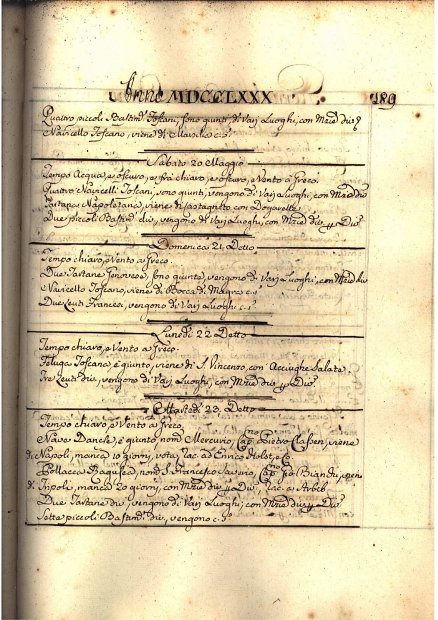 Anno MDCCLXXX
189
Quattro piccoli Bastim.ti Toscani, sono giunti, di Varj Luoghi, con Mrzie div.e
Navicello Toscano, viene di
Sabato 20 Maggio
Tempo Acqua, e oscuro, e frà chiaro, e oscuro, e Vento a Greco.
Quattro Navicelli Toscani, sono giunti, vengono di Varj Luoghi, con Mrzie div.e
Tartana Napoletana, viene di
Due piccoli Bastim.ti div.i, vengono di Varj Luoghi, con Mrzie div.e p Div.i
Domenica 21 Detto
Tempo chiaro, e Vento a Greco.
Due Tartane Genovese, sono giunte, vengono di Varj Luoghi, con Mrzie div.e
Navicello Toscano, viene di Bocca di Magra, c.s.
Due Leuti Francesi, vengono di Varj Luoghi c.s.
Lunedi 22 Detto
Tempo chiaro, e Vento a Greco.
Feluga Toscana è giunta, viene di S. Vincenzo, con Acciughe Salate
Tre Leuti div.i, vengono di Varj Luoghi, con Mrzie div.e p Div.i
Martedi 23 Detto
Tempo chiaro, e Vento a Greco
Nave Danese, è giunta nom.ta Mercurio, Cap.no Pietro Classen, viene
di Napoli, manca 10 giorni, vota, rac. ad Enrico Holst, e C.
Pollacca Ragusea, nom.ta S. Francesco Saverio, Cap.no Biandi, viene
di, manca 20 giorni, con Mrzie div.e p Div.i, rac. a
Due Tartane div.e, vengono di Varj Luoghi, con Mrzie div.e p Div.i
Sette piccoli Bastim.ti div.i, vengono c.s.